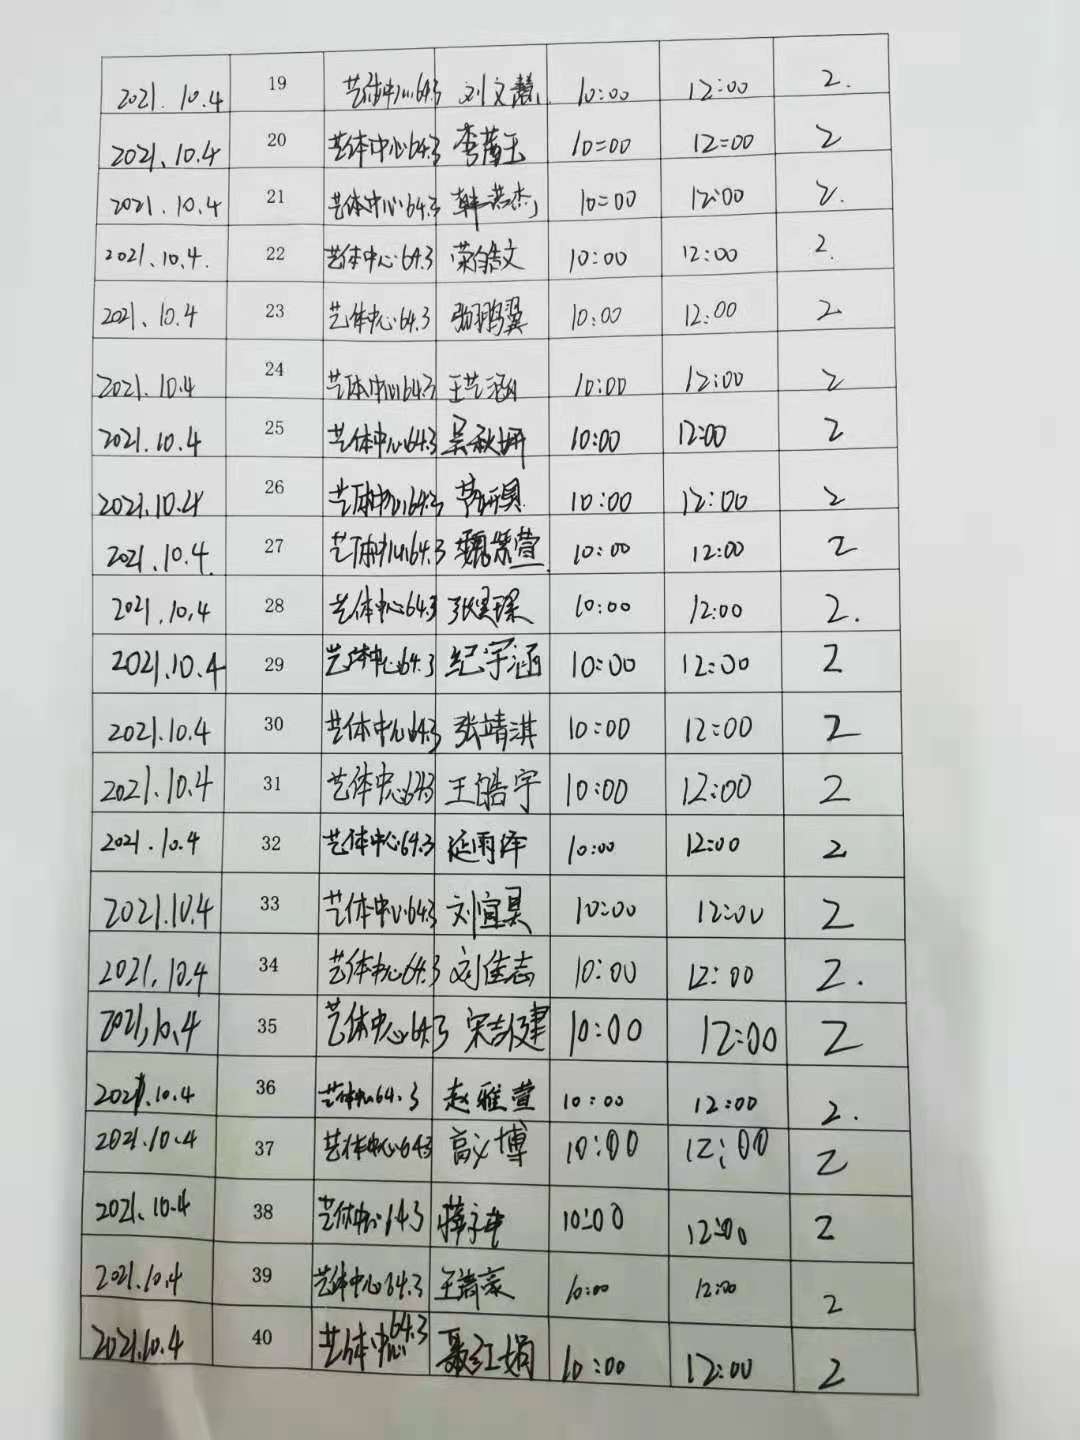 2021.10.4 19 艺体中心64.3 刘文慧 10:00 12:00 2.
2021.10.4 20 艺体中心64.3 李莆玉 10:00 12:00 2
2021.10.4 21 艺体中心64.3 韩洪杰 10:00 12:00 2.
2021.10.4. 22 艺体中心64.3 荣皓文 10:00 12:00 2.
2021.10.4 23 艺体中心64.3 张鹏翼 10:00 12:00 2
2021.10.4 24 艺体中心64.3 王艺涵 10:00 12:00 2
2021.10.4 25 艺体中心64.3 吴秋妍 10:00 12:00 2
2021.10.4 26 艺体中心64.3 10:00 12:00 2
2021.10.4. 27 艺体中心64.3 魏紫萱 10:00 12:00 2
2021.10.4 28 艺体中心64.3 10:00 12:00 2.
2021.10.4 29 艺体中心64.3 纪宇涵 10:00 12:00 2
2021.10.4 30 艺体中心64.3 张靖淇 10:00 12:00 2
2021.10.4 31 艺体中心643 王皓宇 10:00 12:00 2
2021.10.4 32 艺体中心64.3 延雨泽 10:00 12:00 2
2021.10.4 33 艺体中心64.3 刘宣昊 10:00 12:00 2
2021.10.4 34 艺体中心64.3 刘佳志 10:00 12:00 2.
2021.10.4 35 艺体中心64.3 宋吉健 10:00 12:00 2
2021.10.4 36 艺体中心64.3 赵雅萱 10:00 12:00 2.
2021.10.4 37 艺体中心643 高义博 10:00 12:00 2
2021.10.4 38 艺体中心64.3 10:00 12:00 2
2021.10.4 39 艺体中心64.3 10:00 12:00 2
2021.10.4 40 艺体中心64.3 聂红娟 10:00 12:00 2